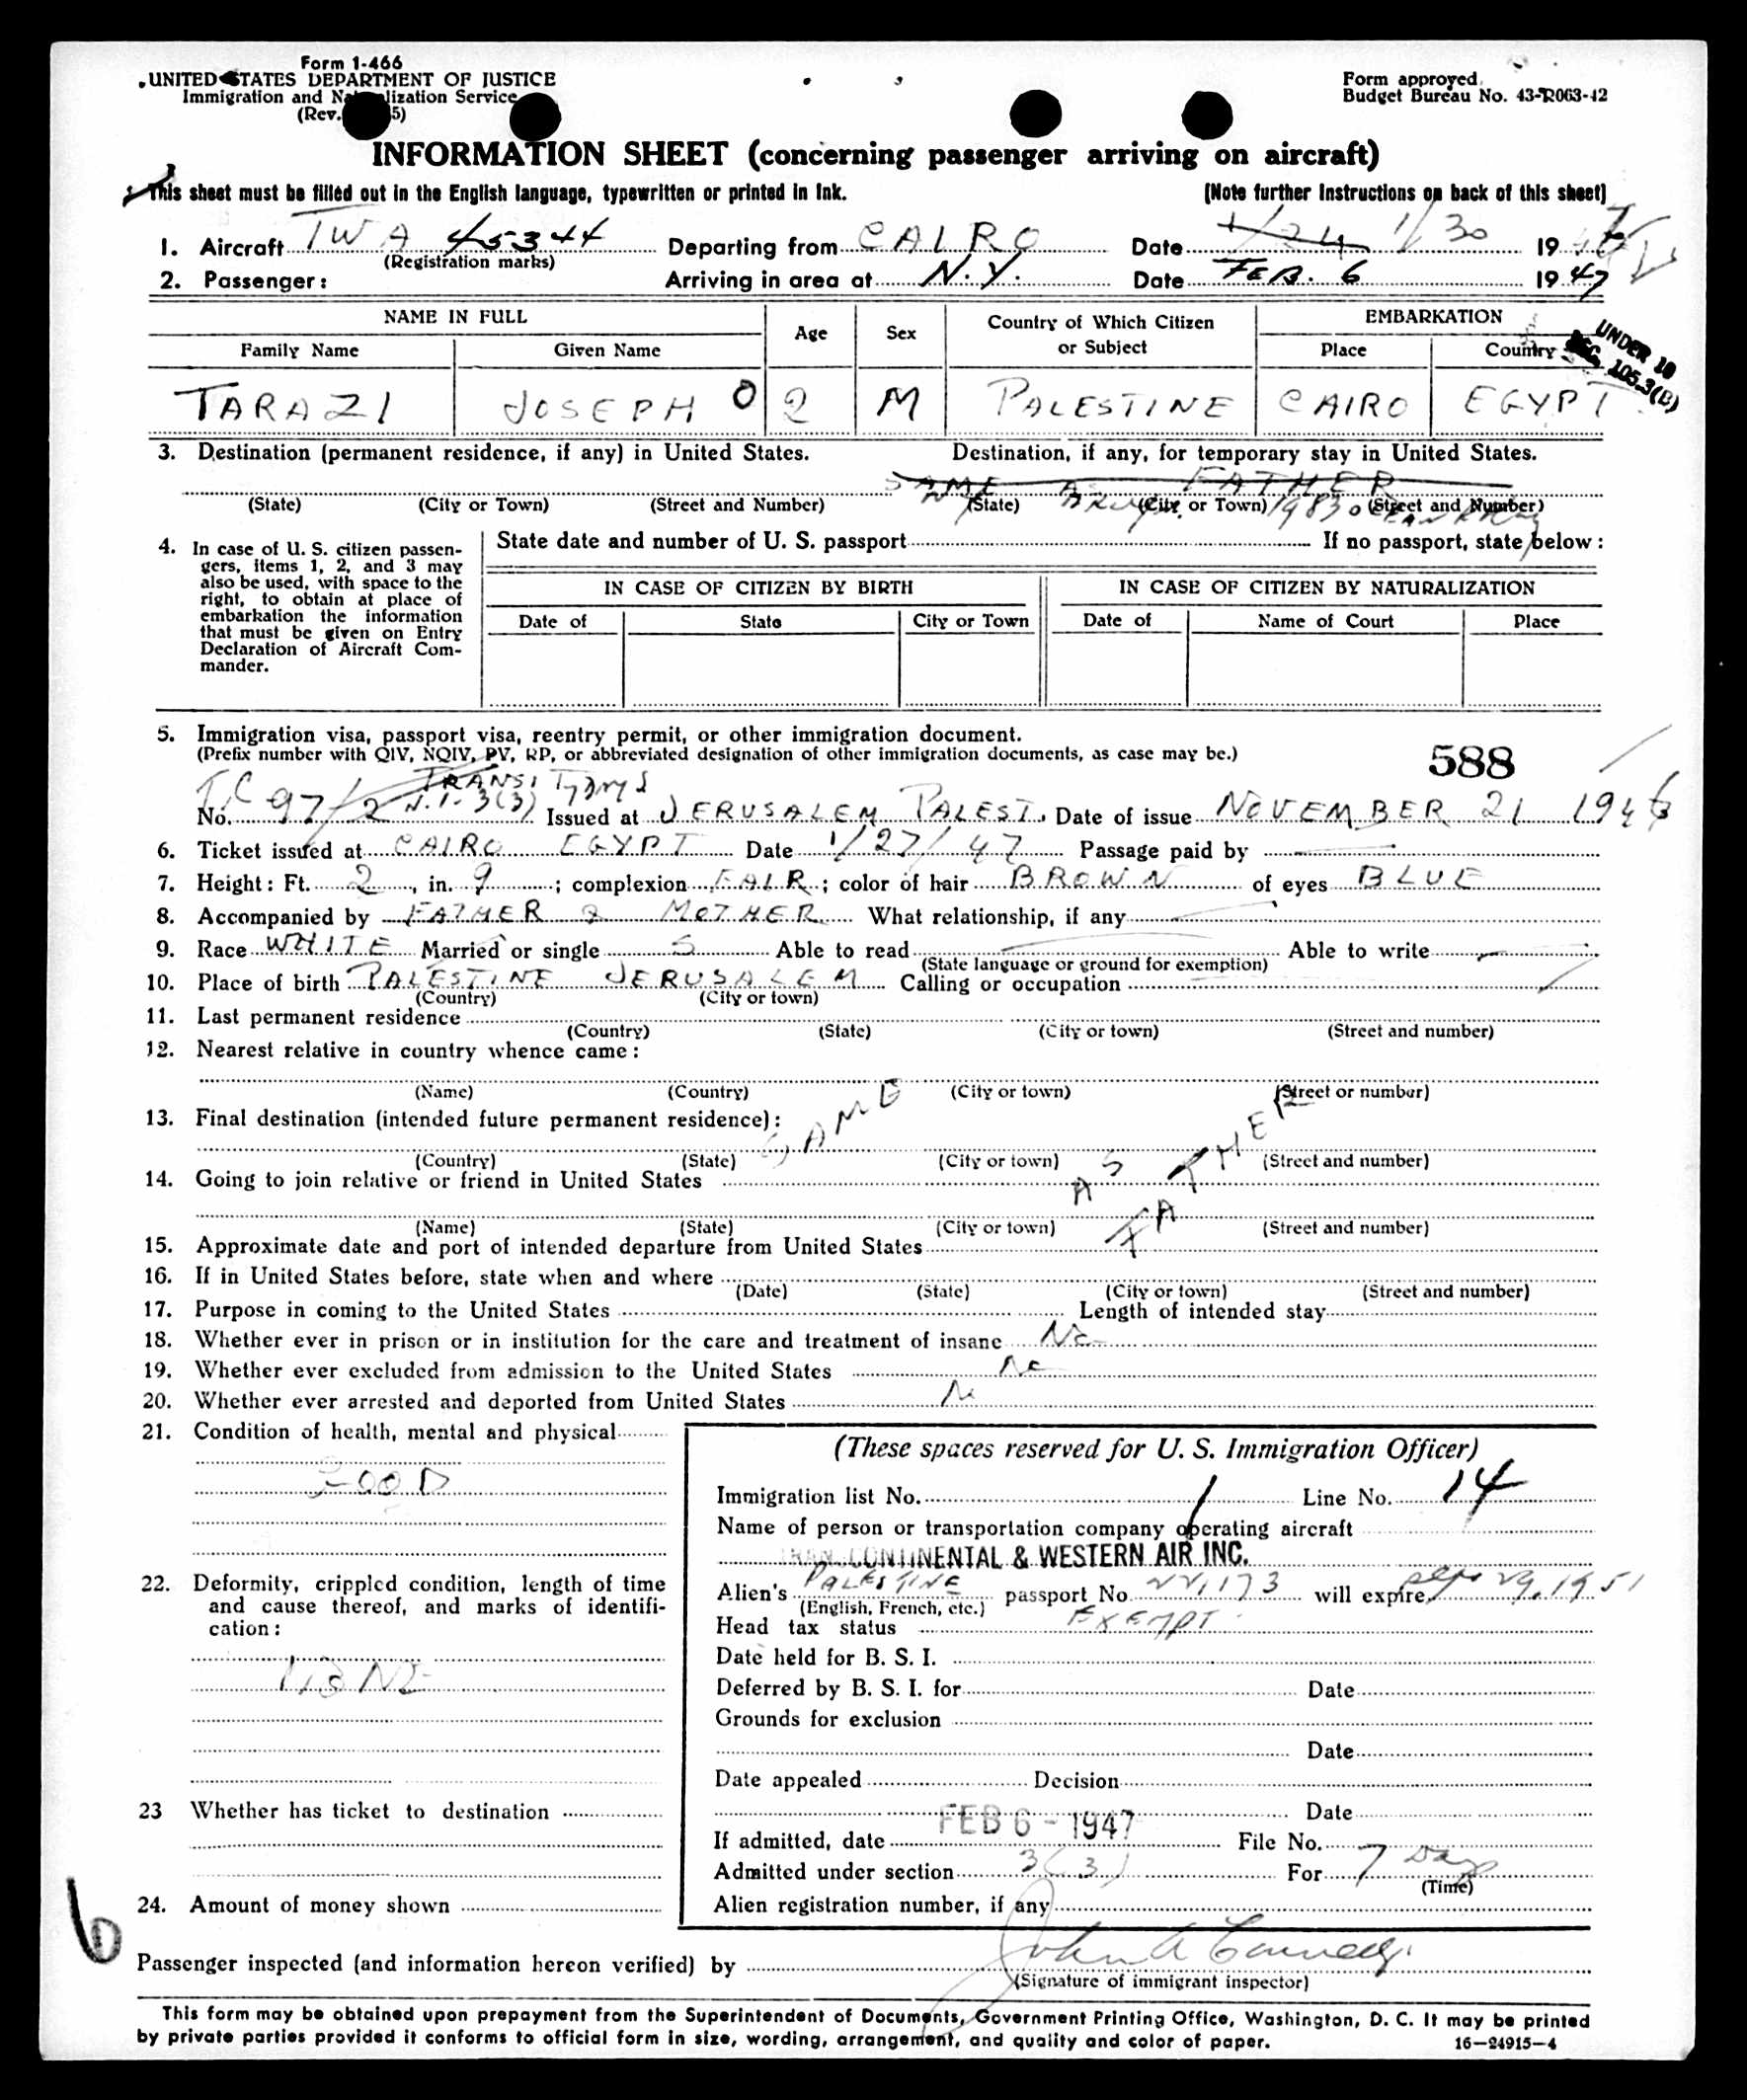 Form 1-466
UNITED STATES DEPARTMENT OF JUSTICE
Immigration and Naturalization Service
(Rev. 5)
Form approved.
Budget Bureau No. 43-R063-42
INFORMATION SHEET (concerning passenger arriving on aircraft)
This sheet must be filled out in the English language, typewritten or printed in ink. (Note further instructions on back of this sheet)
1. Aircraft TWA 45344 Departing from CAIRO Date 1/24 1/30 19
(Registration marks)
2. Passenger: Arriving in area at N.Y. Date FEB. 6 1947
NAME IN FULL Age Sex Country of Which Citizen or Subject EMBARKATION
Family Name Given Name Place Country
UNDER 10
SEC. 105.3(B)
TARAZI JOSEPH O 2 M PALESTINE CAIRO EGYPT
3. Destination (permanent residence, if any) in United States. Destination, if any, for temporary stay in United States.
SAME FATHER
(State) (City or Town) (Street and Number) (State) (City or Town) (Street and Number)
1983
4. In case of U. S. citizen passengers, items 1, 2, and 3 may also be used, with space to the right, to obtain at place of embarkation the information that must be given on Entry Declaration of Aircraft Commander.
State date and number of U. S. passport If no passport, state below:
IN CASE OF CITIZEN BY BIRTH IN CASE OF CITIZEN BY NATURALIZATION
Date of State City or Town Date of Name of Court Place
5. Immigration visa, passport visa, reentry permit, or other immigration document.
(Prefix number with QIV, NQIV, PV, RP, or abbreviated designation of other immigration documents, as case may be.)
588
TRANSIT
No. 97/2 3(3) Issued at JERUSALEM PALEST. Date of issue NOVEMBER 21 1946
6. Ticket issued at CAIRO EGYPT Date 1/27/47 Passage paid by
7. Height: Ft. 2, in. 9; complexion FAIR; color of hair BROWN of eyes BLUE
8. Accompanied by FATHER & MOTHER What relationship, if any
9. Race WHITE Married or single S Able to read Able to write
(State language or ground for exemption)
10. Place of birth PALESTINE JERUSALEM Calling or occupation
(Country) (City or town)
11. Last permanent residence
(Country) (State) (City or town) (Street and number)
12. Nearest relative in country whence came:
(Name) (Country) (City or town) (Street or number)
13. Final destination (intended future permanent residence):
SAME AS FATHER
(Country) (State) (City or town) (Street and number)
14. Going to join relative or friend in United States
(Name) (State) (City or town) (Street and number)
15. Approximate date and port of intended departure from United States
16. If in United States before, state when and where
(Date) (State) (City or town) (Street and number)
17. Purpose in coming to the United States Length of intended stay
18. Whether ever in prison or in institution for the care and treatment of insane No
19. Whether ever excluded from admission to the United States No
20. Whether ever arrested and deported from United States No
21. Condition of health, mental and physical
GOOD
22. Deformity, crippled condition, length of time and cause thereof, and marks of identification:
23 Whether has ticket to destination
24. Amount of money shown
(These spaces reserved for U. S. Immigration Officer)
Immigration list No. 1 Line No. 14
Name of person or transportation company operating aircraft
TRANSCONTINENTAL & WESTERN AIR INC.
Alien's PALESTINE passport No. 221173 will expire Sept 29, 1951
(English, French, etc.)
Head tax status EXEMPT
Date held for B. S. I.
Deferred by B. S. I. for Date
Grounds for exclusion
Date
Date appealed Decision
Date
If admitted, date FEB 6 - 1947 File No.
Admitted under section 3(3) For 7 Days
(Time)
Alien registration number, if any
6
Passenger inspected (and information hereon verified) by
(Signature of immigrant inspector)
This form may be obtained upon prepayment from the Superintendent of Documents, Government Printing Office, Washington, D. C. It may be printed
by private parties provided it conforms to official form in size, wording, arrangement, and quality and color of paper. 16—24915-4